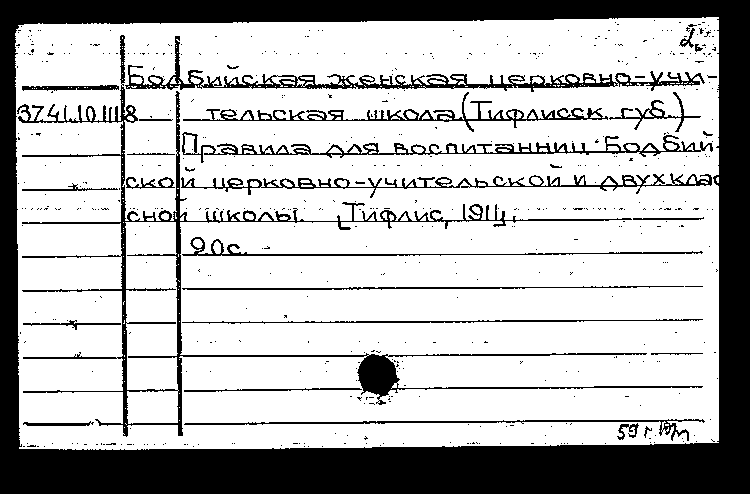 2.
Бодбийская женская церковно-учи-
37.41.10.111 8 тельская школа (Тифлисск. губ.)
Правила для воспитанниц Бодбий-
ской церковно-учительской и двухклас
сной школы. [Тифлис, 1911].
20с.
59 г.